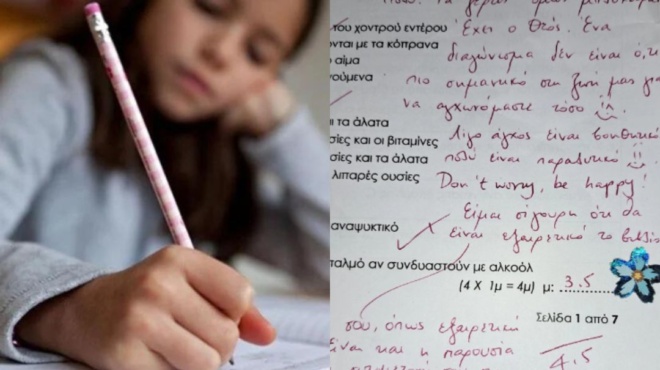 του χοντρού εντέρου Έχει ο Θεός. Ένα
νται με τα κόπρανα διαγώνισμα δεν είναι ό,τι
αίμα
ούμενα πιο σημαντικό στη ζωή μας για
να αγχωνόμαστε τόσο
ι τα άλατα
σίες και οι βιταμίνες Λίγο άγχος είναι βοηθητικό
σίες και τα άλατα πολύ είναι παραλυτικό
λιπαρές ουσίες Don't worry, be happy!
Είμαι σίγουρη ότι θα
αναψυκτικό είναι εξαιρετικό το
ταλμό αν συνδυαστούν με αλκοόλ
(4 Χ 1μ = 4μ) μ: 3.5
Σελίδα 1 από 7
σου, όπως εξαιρετική
είναι και η παρουσία
4.5